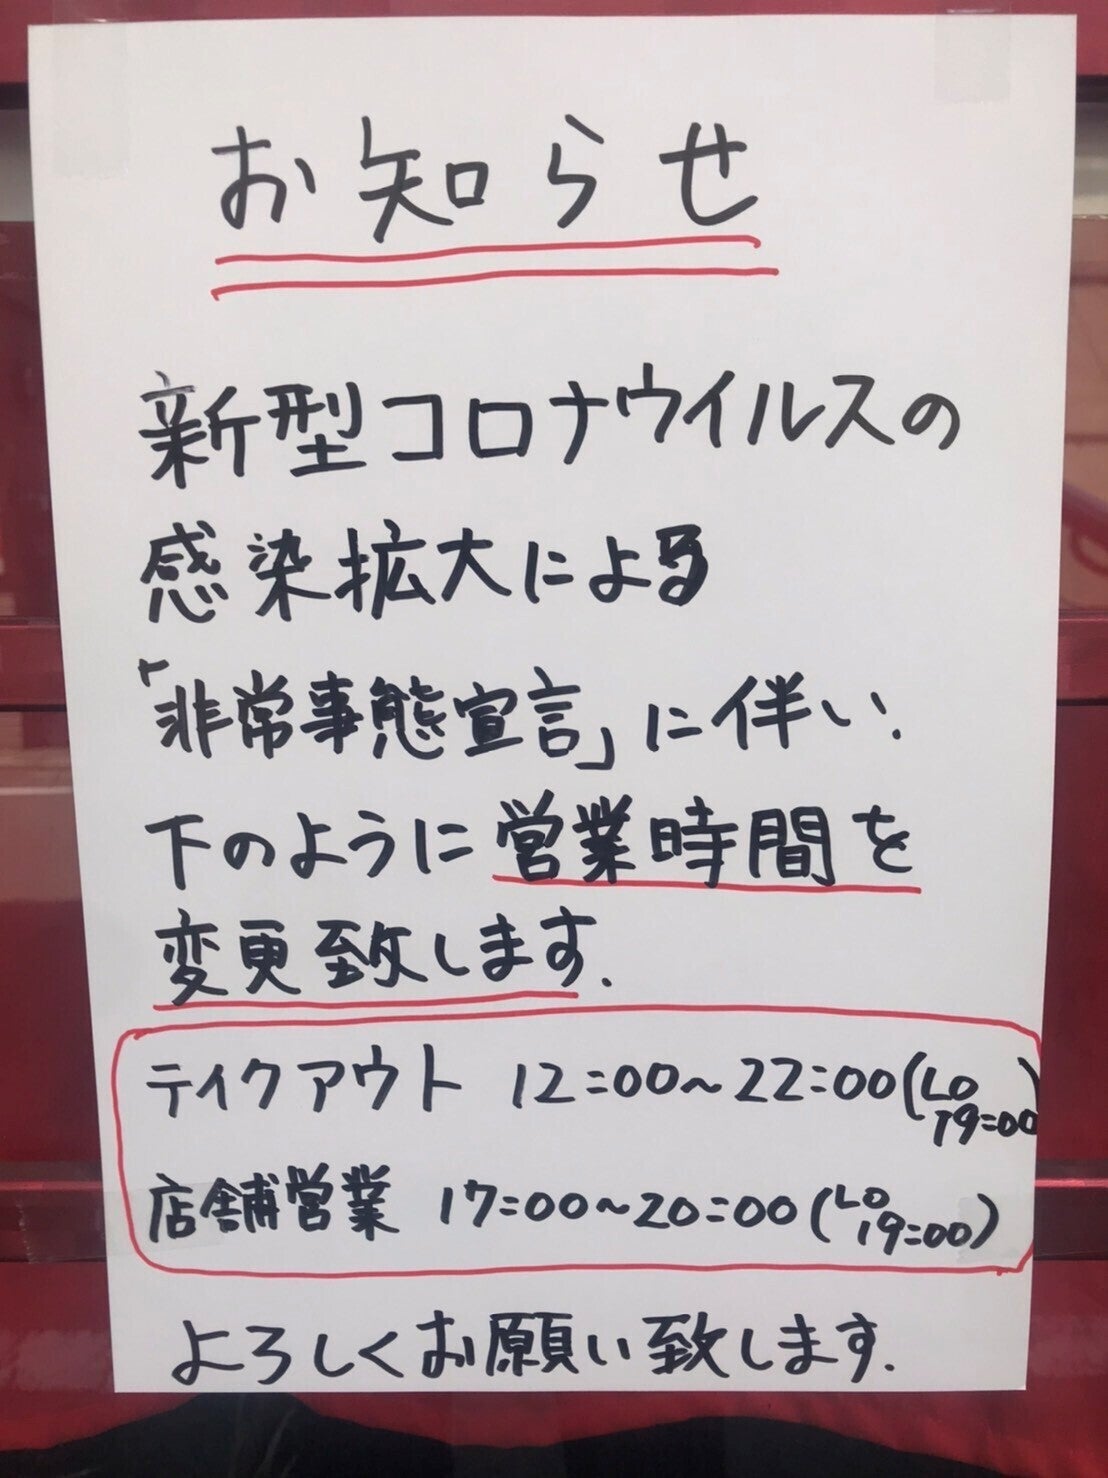 お知らせ
新型コロナウイルスの
感染拡大による
「非常事態宣言」に伴い.
下のように営業時間を
変更致します.
テイクアウト 12:00~22:00(LO
19:00)
店舗営業 17:00~20:00(LO
19:00)
よろしくお願い致します.